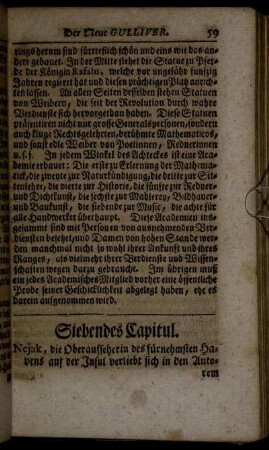 Der Neue GULLIVER. 59
rings herum sind fürtreflich schön und eins wie das an-
dere gebauet. In der Mitte stehet die Statue zu Pfer-
de der Königin Rafalu, welche vor ungefähr funfzig
Jahren regieret hat und diesen prächtigen Platz anrich-
ten lassen. An allen Seiten desselben stehen Statuen
von Weibern, die seit der Revolution durch wahre
Verdienste sich hervorgethan haben. Diese Statuen
präsentiren nicht nur grosse Generalspersonen, sondern
auch kluge Rechtsgelehrten, berühmte Mathematicos,
und sonst edle Weiber von Poetinnen, Rednerinnen
u.s.f. In jedem Winkel des Achteckes ist eine Aca-
demie erbauet: Die erste zu Erlernung der Mathema-
tick, die zweyte zur Naturkündigung, die dritte zur Sit-
tenlehre, die vierte zur Historie, die fünfte zur Redner-
und Dichtkunst, die sechste zur Mahlerey, Bildhauer-
und Baukunst, die siebende zur Music, die achte für
alle Handwerker überhaupt. Diese Academien ins-
gesammt sind mit Personen von ausnehmenden Ver-
diensten besetzt, und Damen von hohen Stande wer-
den manchmal nicht so wohl ihrer Ankunft und ihres
Ranges, als vielmehr ihrer Verdienste und Wissen-
schaften wegen darzu gebraucht. Im übrigen muß
ein jedes Academisches Mitglied vorher eine öffentliche
Probe seiner Geschicklichkeit abgelegt haben, ehe es
darein aufgenommen wird.
Siebendes Capitul.
Nejak, die Oberaufseherin des fürnehmsten Ha-
vens auf der Insul verliebt sich in den Auto-
rem